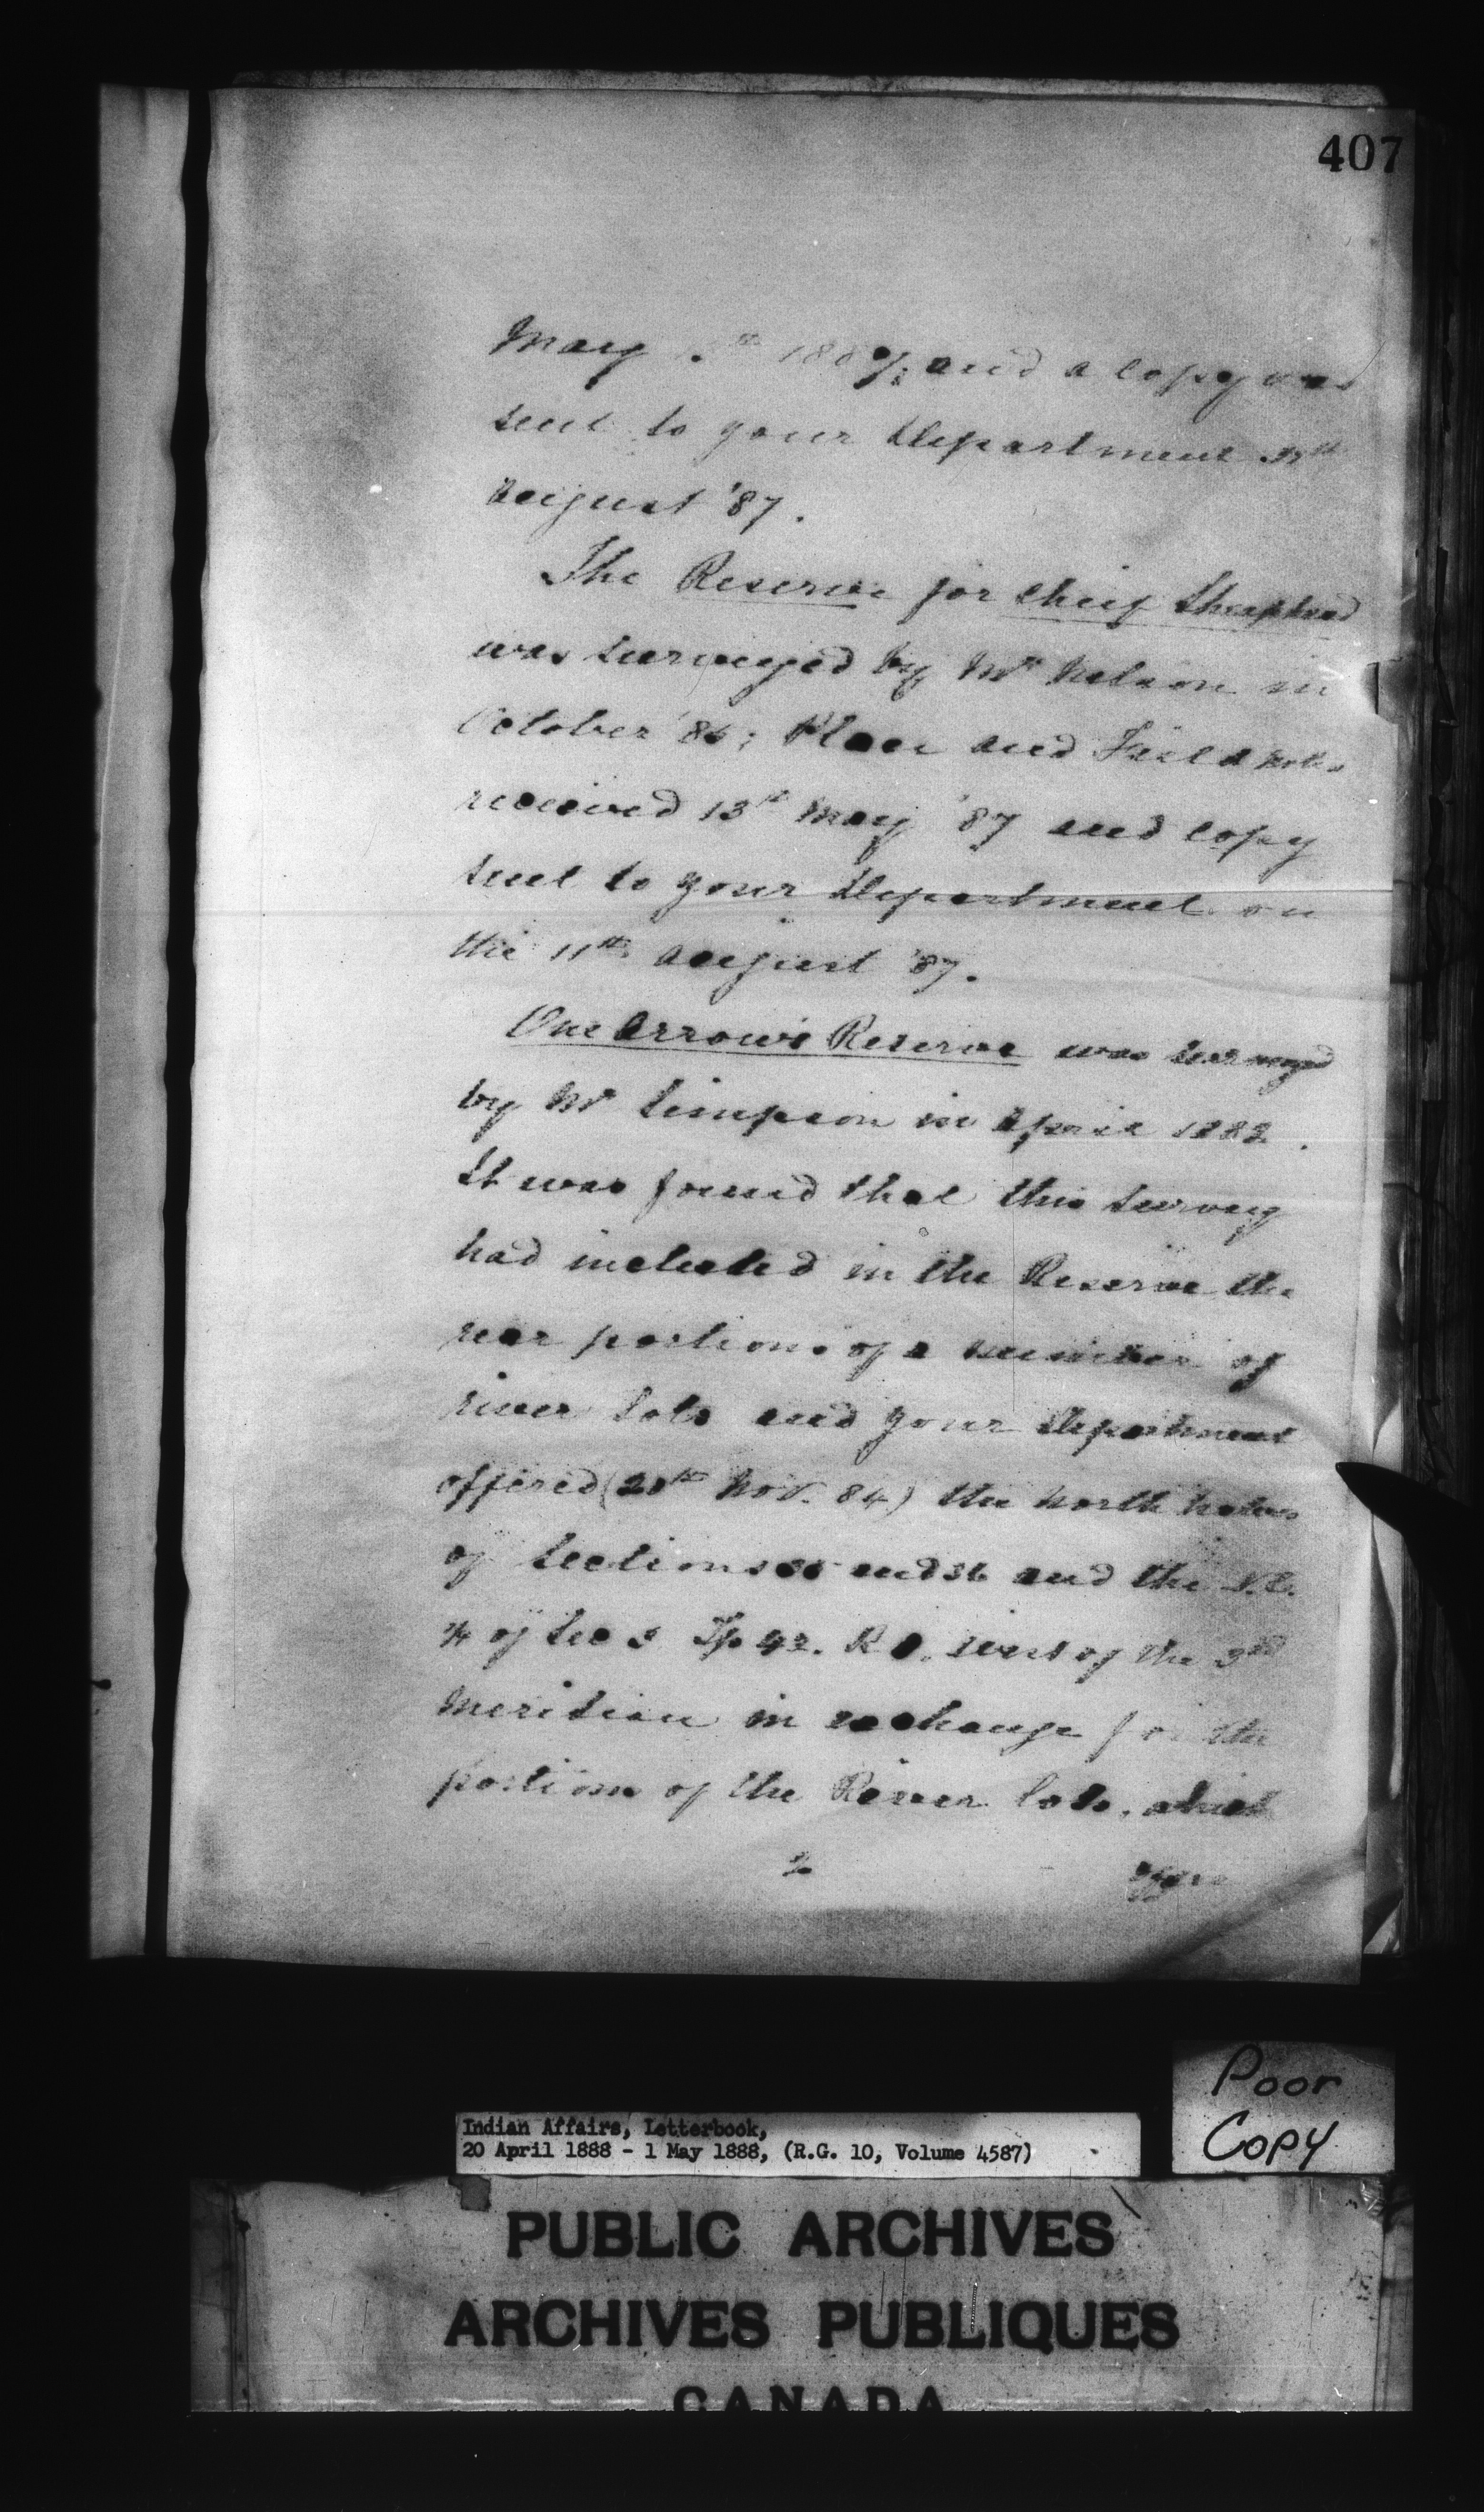 407
May 1887; and a copy was
sent to your Department
August '87.
The Reserve for Chief
was surveyed by Mr Nelson in
October '86; Plan and Field notes
received 13th May '87 and copy
sent to your Department on
the 11th August '87.
One Arrow's Reserve was surveyed
by Mr Simpson in April 1882.
It was found that this survey
had included in the Reserve the
rear portions of a number of
river lots and your Department
offered (20th Nov. 84) the north halves
of Sections 35 and 36 and the S.E.
¼ of Sec 3 Tp 42. R west of the 3rd
Meridian in exchange for the
portions of the River lots, which
2
Indian Affairs, Letterbook,
20 April 1888 - 1 May 1888, (R.G. 10, Volume 4587)
Poor
Copy
PUBLIC ARCHIVES
ARCHIVES PUBLIQUES
CANADA